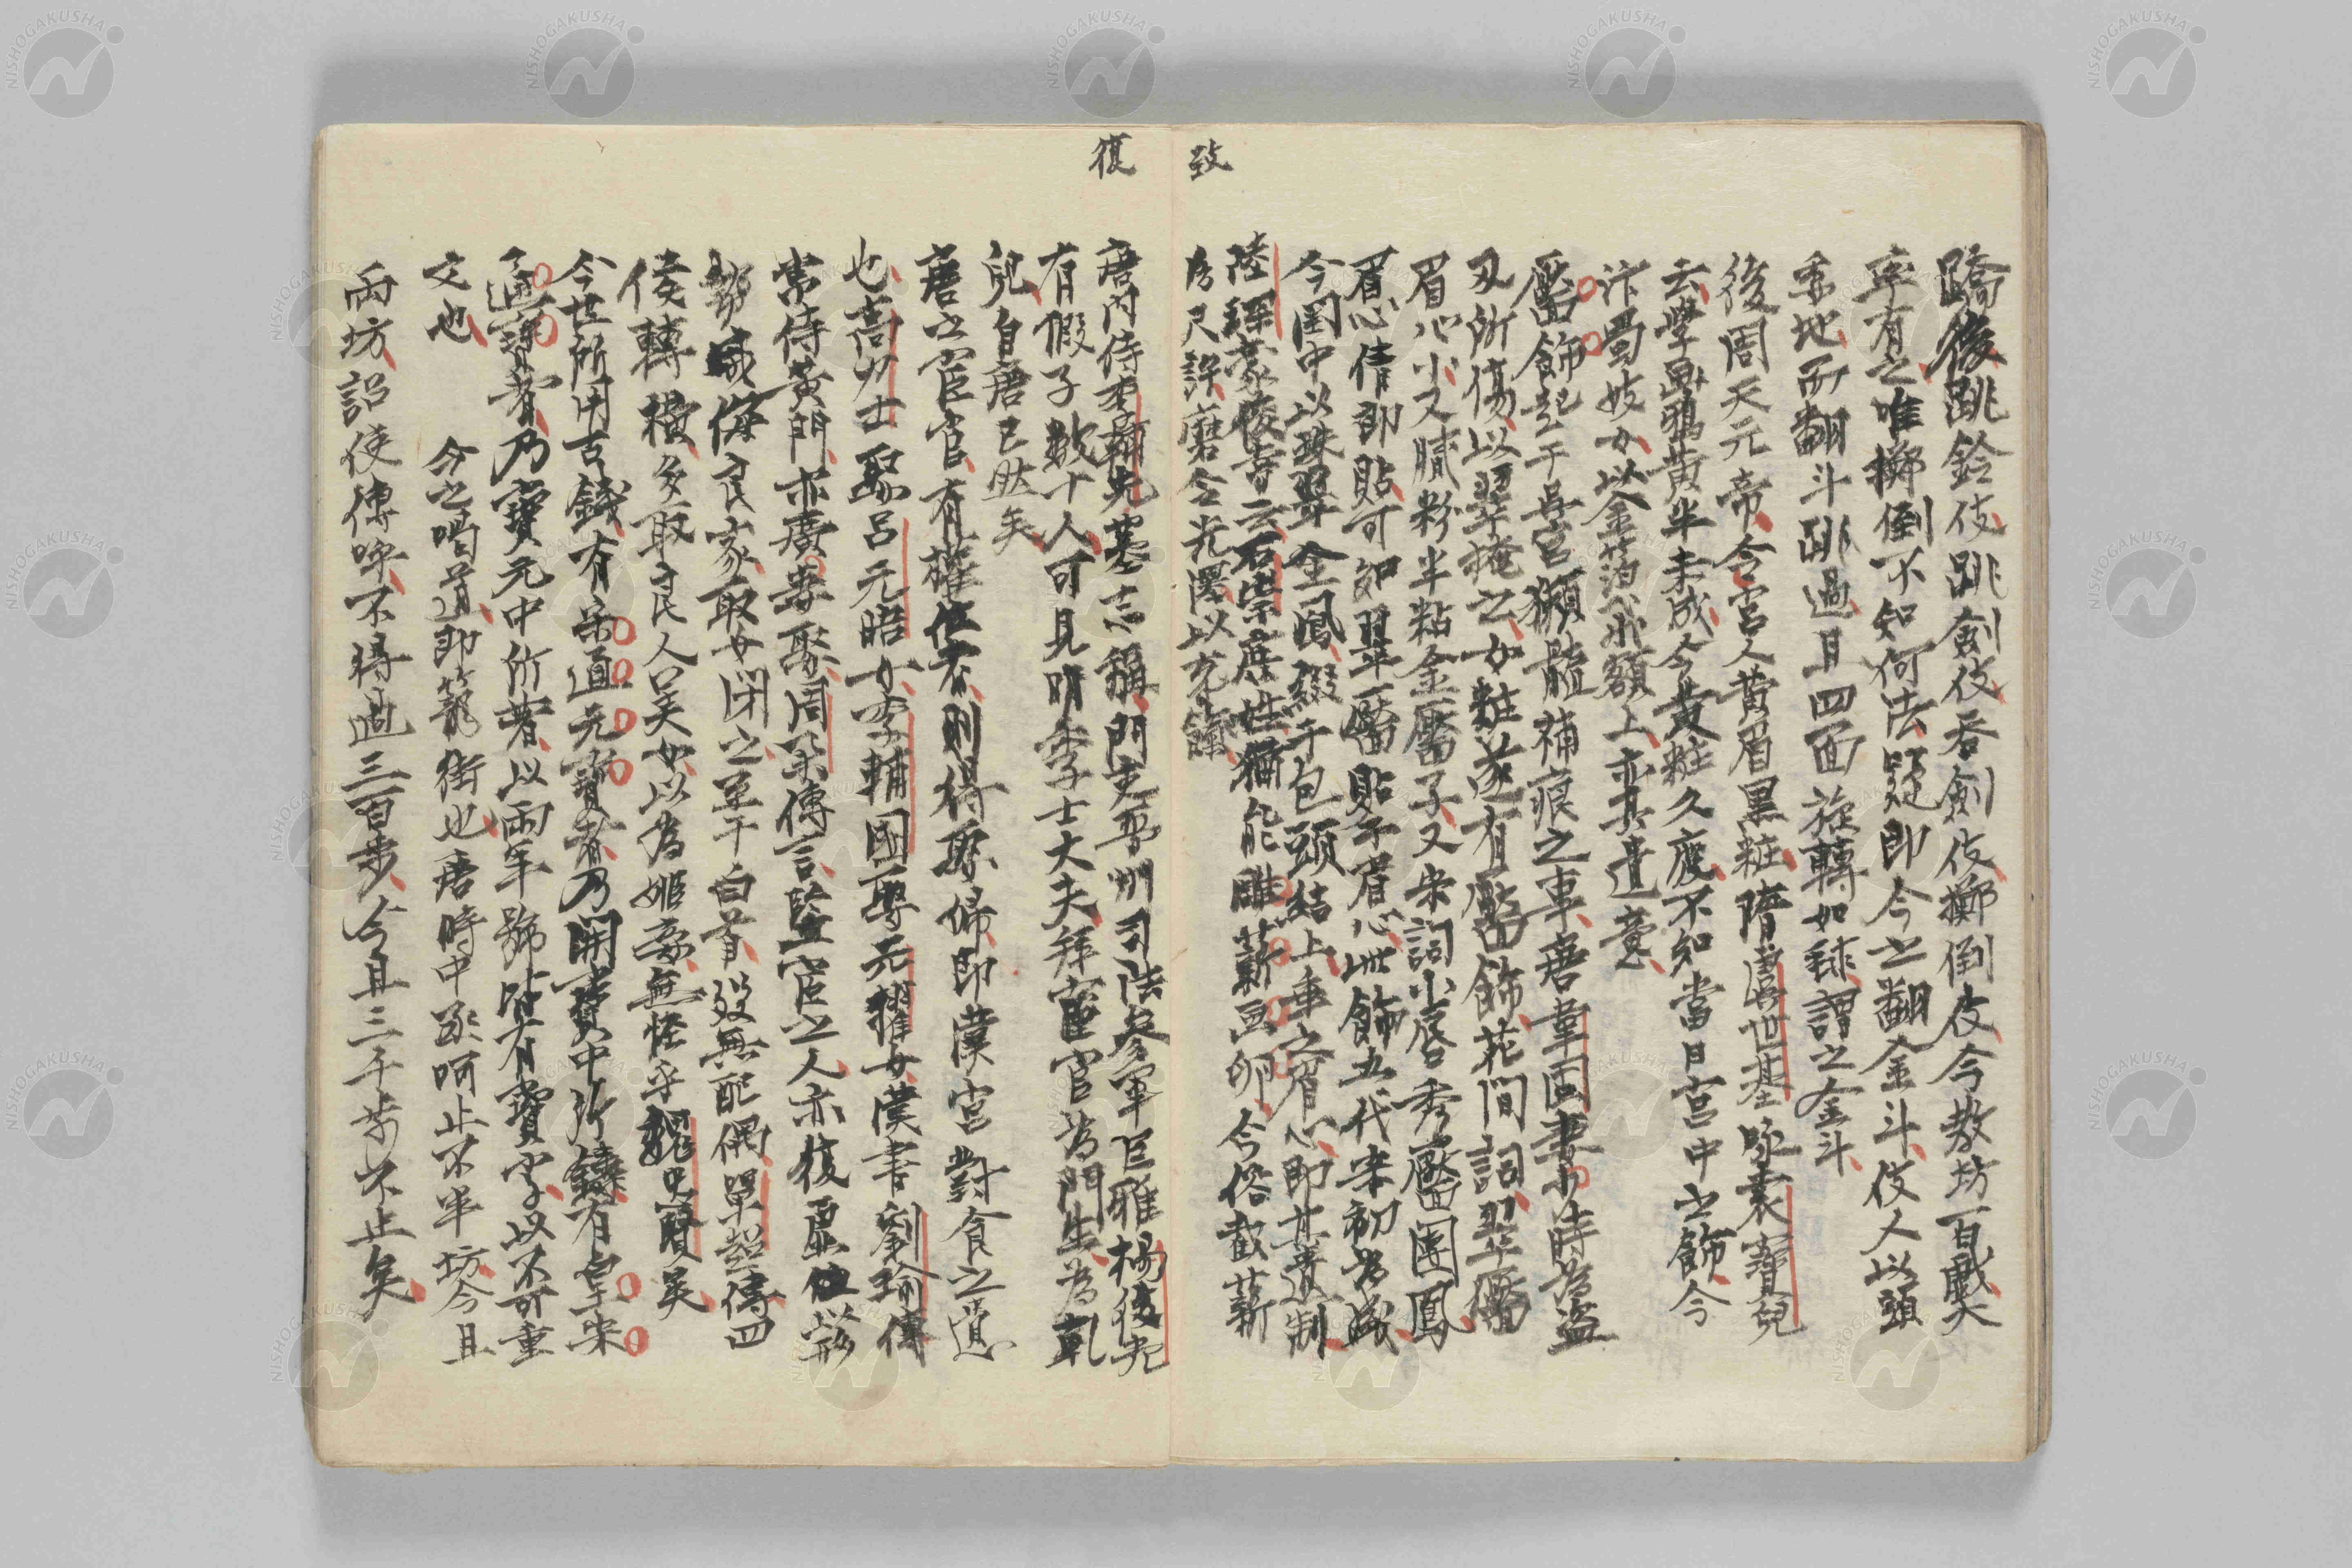 攷
蹻伎跳鈴伎跳劍伎吞劍伎擲倒伎今教坊百戲大
率有之唯擲倒不知何法疑即今之翻金斗伎人以頭
委地而翻斗跳過且四面旋轉如毬謂之金斗
後周天元帝令宮人黃眉黑粧隋虞世基咏袁寶兒
云學畫鴉黃半未成今黃粧久廢不知當日宮中之飾今
汴蜀妓女以金箔水額上亦其遺意
靨飾起于吳宮獺髓補痕之事唐韋固妻少時為盜
刃所傷以翠掩之女粧遂有靨飾花間詞翠靨
眉心小又膩粉半粘金靨子又宋詞小唇秀靨團鳳
眉心倩即貼可知翠靨貼于眉心此飾五代宋初為盛
今閨中以珠翠金鳳綴于包頭結上垂之眉心即其遺制
陸探豪後奇云石崇庶姓猶能雕薪畫卵今俗截薪
為尺許磨令光澤以充饋
復
唐內侍李輔光墓志稱門吏晉州司法參軍臣雅楊復光
有假子數十人可見明季士大夫拜宦官為門生為乾
兒自唐已然矣
唐之宦官有權位者則得娶婦即漢宮對食之遺
也高力士娶呂元晤女李輔國娶元擢女漢書劉瑜傳
常侍黃門亦廣妻娶周舉傳言豎宦之人亦復虛以形
勢威侮良家取女閉之至于白首歿無配偶單超傳四
侯轉橫多取良人美女以為姬妾無怪乎魏忠賢矣
今世所用古錢有宋通元寶者乃開寶中所鑄有皇宋
通寶者乃寶元中所著以兩年號皆有寶字以不可重
文也
今之喝道即籠街也唐時中丞呵止不半坊今且
兩坊詔使傳呼不得過三百步今且三千步不止矣